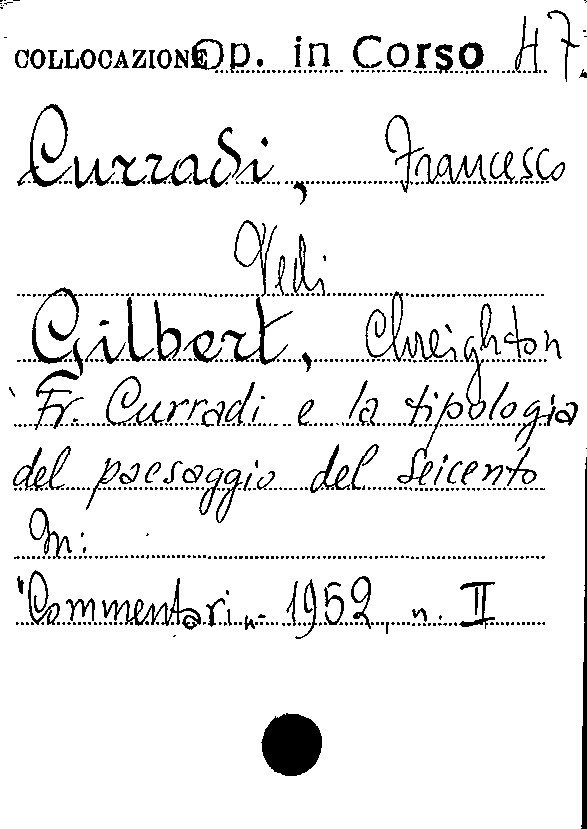 COLLOCAZIONE Op. in Corso H7.
Curradi, Francesco
Vedi
Gilbert, Chreighton
Fr. Curradi e la tipologia
del paesaggio del Seicento
In:
"Commentari„ 1952, n. II